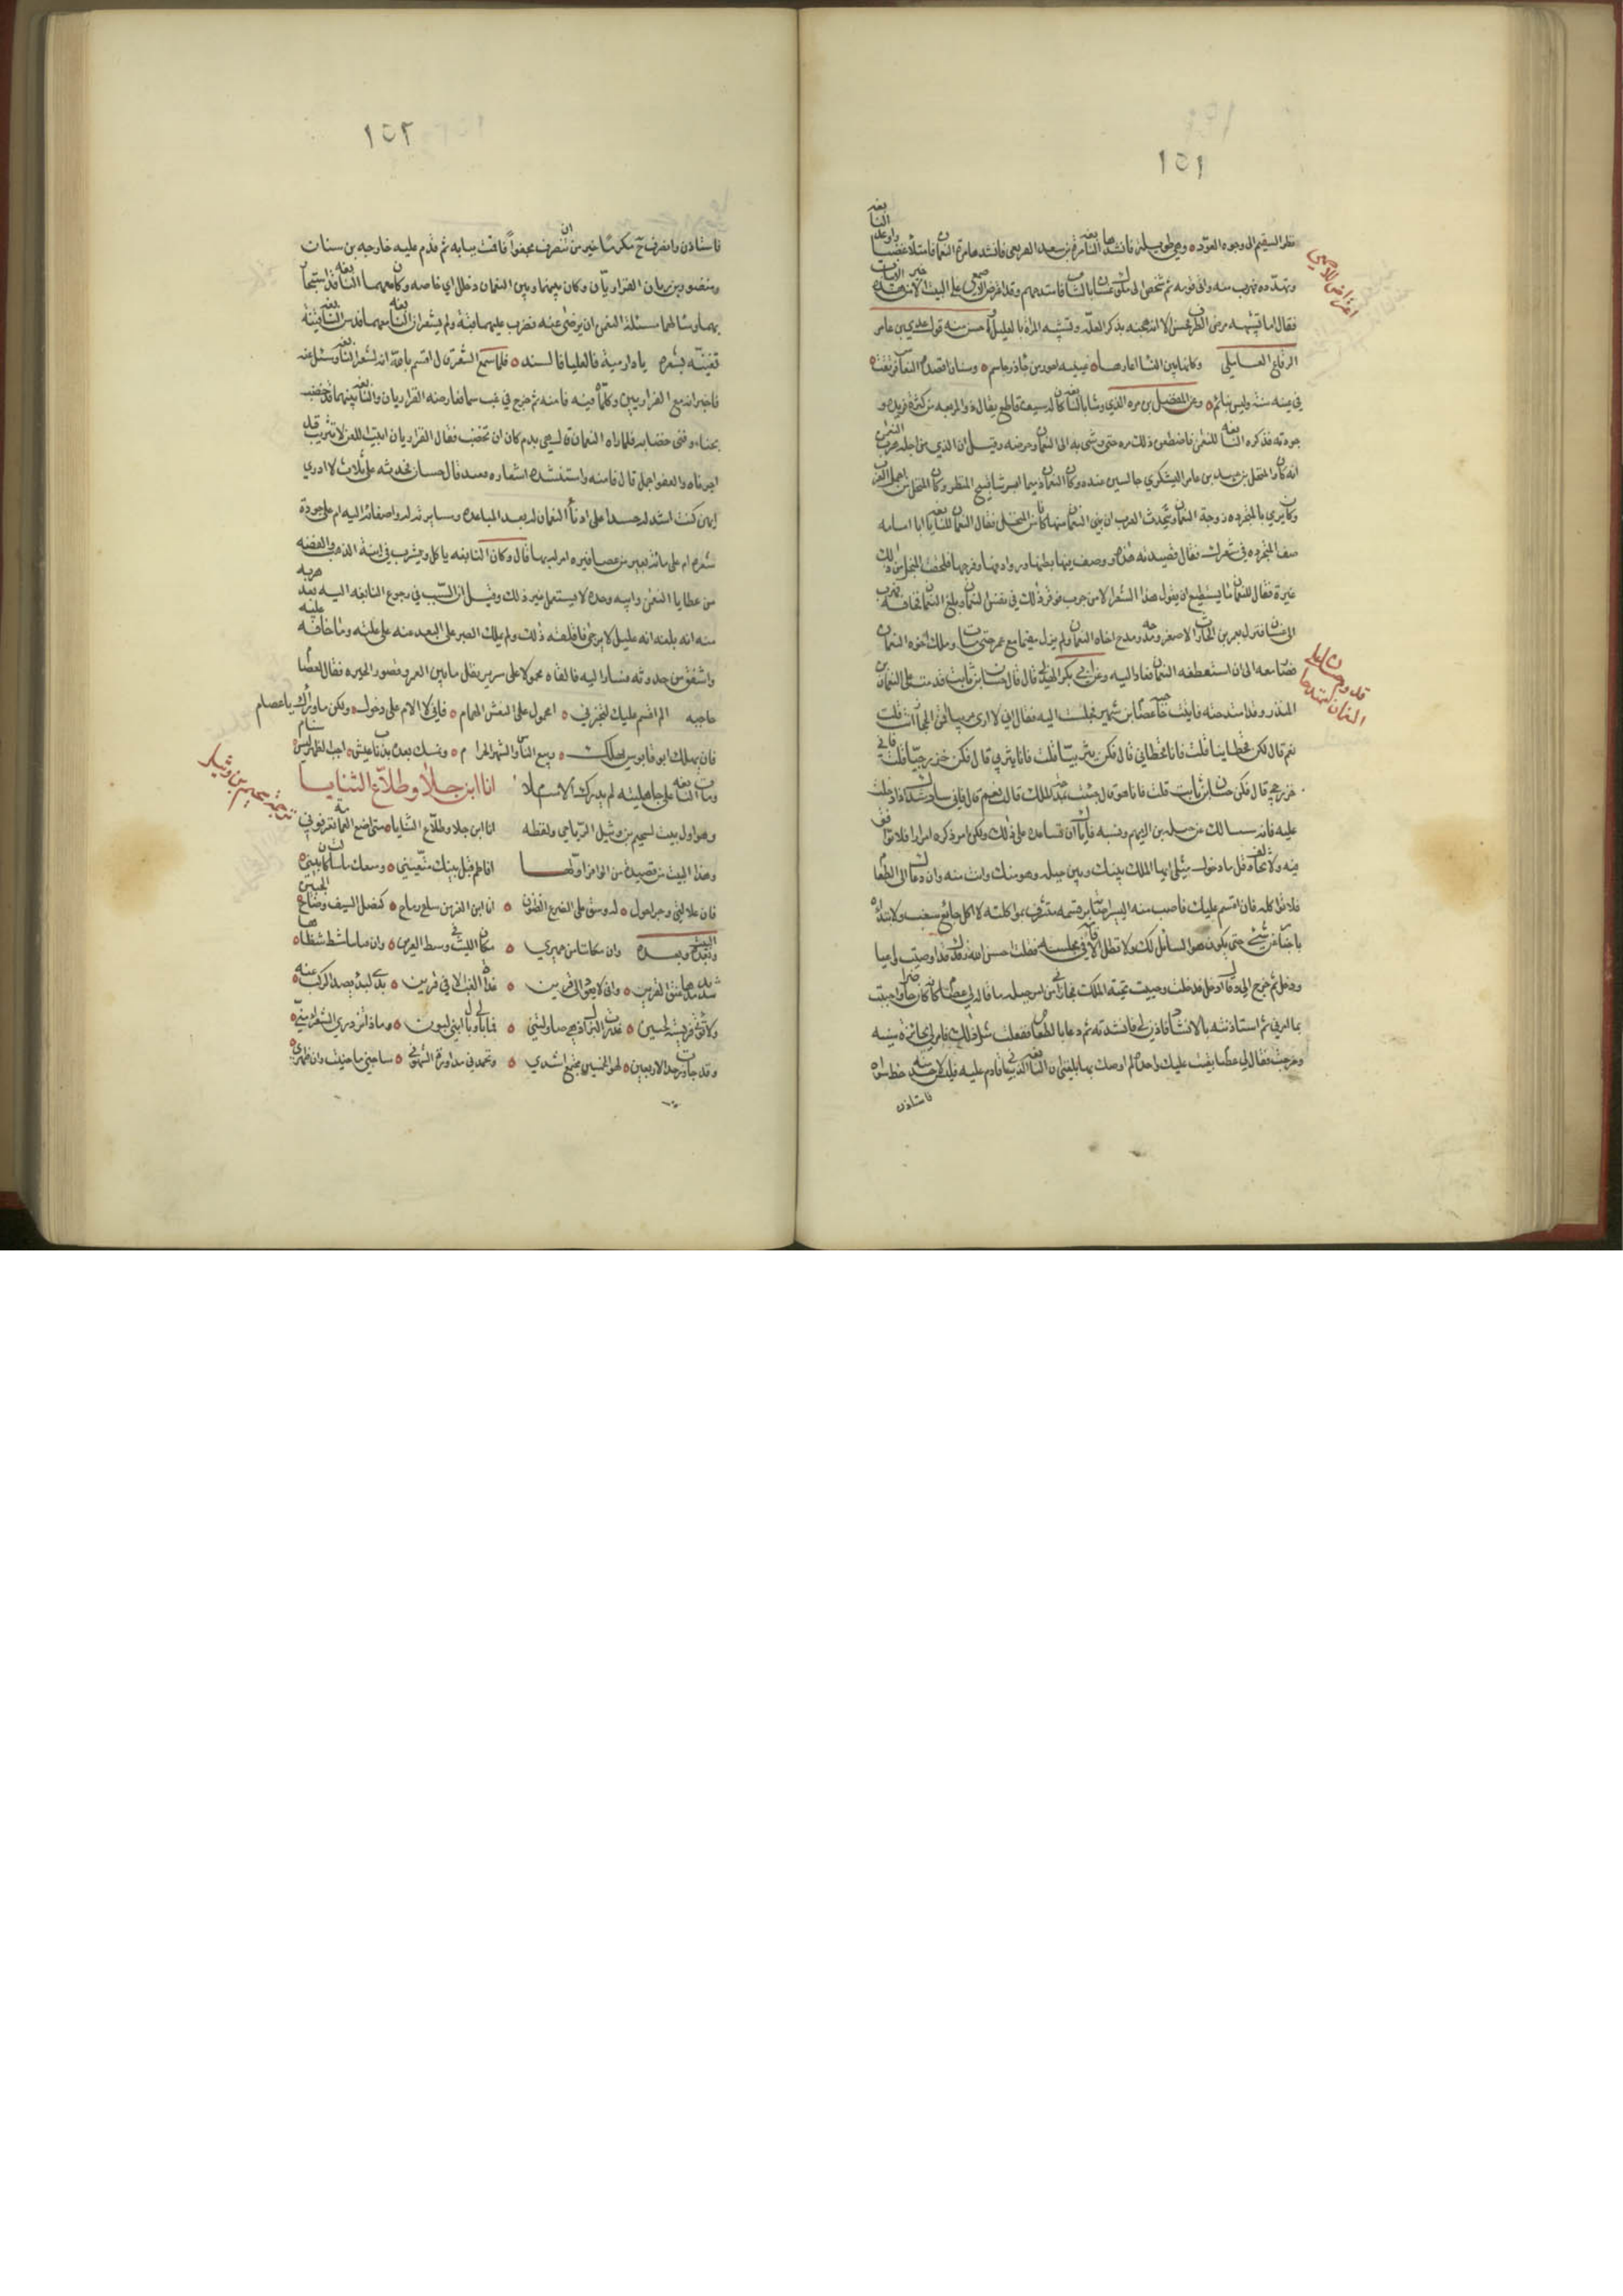 ١٥١
نظر السقيم الى وجوه العوّد وهي طويله فانشدها النابغه مرة بن سعد القريعي فانشدها مرة النعمان فامتلأ غضبا واوعد النابغه
وتهدده فهرب منه واتى قومه ثم شخص الى ملوك غسان بالشام فامتدحهم وقد اعترض الاصمعي على البيت الا من هذه
اعتراض الاصمعي
فقال اما تشبيهه مرض الطرف فحسن الا انه هجنه بذكر العلة وتشبيه المرأة بالعليل واحسن منه قول عدي بن
الرقاع العاملي وكانها بين النسا اعارها عينيه احور من جاذر جاسم وسنان اقصده النعاس فرنقت
في عينه سنة وليس بنائم وعن المفضل بن مره الذي وشا بالنابغه كان له سيف قاطع يقال ذو الريقه من كثرة فرنده و
جودته فذكره النابغه للنعمن فاضطغن ذلك مره حتى وشى به الى النعمان وحرضه وقيل ان الذي من اجله هرب
انه كان والمنخل بن عبيد بن عامر اليشكري جالسين عنده وكان النعمان دميما ابرشا قبيح المنظر وكان المنخل من اجمل العرب
وكان يرمي بالمتجرده زوجة النعمان وتحدث العرب ان بني النعمان منها كانا من المنخل فقال النعمان للنابغه يا ابا امامه
صف المتجرده في شعرك فقال قصيدته هذه ووصف فيها بطنها وروادفها وفرجها فلحقت المنخل من ذلك
غيرة فقال للنعمان ما يستطيع ان يقول هذا الشعر الا من جرب فوقر ذلك في نفس النعمان وبلغ النابغه فخافه فهرب
الى غسان فنزل بعمرو بن الحارث الاصغر ومدحه ومدح اخاه النعمان ولم يزل مقيما مع عمرو حتى مات وملك اخوه النعمان
فصار معه الى ان استعطفه النعمان فعاد اليه وعن ابي بكر الهذلي قال قال حسان بن ثابت قدمت على النعمان بن
قدوم حسان على النعمان
المنذر وقد امتدحته فاتيت حاجبه عصام بن شهبر فجلست اليه فقال اني لارى
نعم قال فكن قحطانيا قلت فانا قحطاني قال فكن يثربيا قلت فانا يثربي قال فكن خزرجيا قلت فاني
خزرجي قال فكن حسان بن ثابت قلت فانا هو قال جئت بمدحة الملك قلت نعم قال فاني سارشدك اذا دخلت
عليه فانه سيسالك عن جبله بن الايهم ويسبه فاياك ان تساعده على ذلك ولكن امرر ذكره امرارا لا توافق
فيه ولا تخالف وقل ما دخول مثلي ايها الملك بينك وبين جبله وهو منك وانت منه وان دعاك الى الطعام
فلا تواكله فان اقسم عليك فاصب منه اليسير اصابة بار قسمه متشرف بمواكلته لا اكل جائع سغب ولا تبداه
باخبار عن شيء حتى يكون هو السائل لك ولا تطل الاقامه في مجلسه فقلت احسن الله رفدك قد اوصيت واعيا
ودخل ثم خرج الي وقال ادخل فدخلت وحييت تحية الملك فجاراني من امر جبله ما قال لي عصام كانه كان حاضرا واجبت
بما امرني ثم استاذنته بالانشاد فاذن لي فانشدته ثم دعا بالطعام ففعلت مثل ذلك فامر لي بجائزة سنيه
وخرجت فقال لي عصام بقيت عليك واحدة لم اوصك بها بلغني ان النابغه الذبياني قادم عليه فليس لاحد منه حظ سواه
فاستاذن
١٥٢
فاستاذن وانصرف مكرما خير من ان تنصرف مجفوا فاقمت ببابه ثم قدم عليه خارجه بن سنان
ومنصور بن زبان الفزاريان وكان بينهما وبين النعمان دخلل اي خاصه وكان معهما النابغه قد استجار
بهما وسالهما مسئلة النعمن ان يرضى عنه فضرب عليهما قبة ولم يشعر ان النابغه معهما ودس النابغه قينة
تغنيه بشعره يا دار مية فالعليا فالسند فلما سمع الشعر قال اقسم بالله انه لشعر النابغه وسئل عنه
فاخبر انه مع الفزاريين وكلماه فيه فامنه ثم خرج في غب سما فعارضه الفزاريان والنابغه بينهما قد خضب
بحناء وقنى خضابه فلما راه النعمان قال هي بدم كان ان تخضب فقال الفزاريان ابيت اللعن لا تثريب قد
اجرناه والعفو اجمل قال فامنه واستنشده اشعاره فعند قال حسان فحسدته على ثلاث لا ادري
ايهن كنت اشد له حسدا على ادنا النعمان له بعد المباعده ومسايرته له واصغائه اليه ام على جودة
شعره ام على مائة بعير من عصافيره امر له بها قال وكان النابغه ياكل ويشرب في انية الذهب والفضه
من عطايا النعمن وابيه وجده لا يستعمل غير ذلك وقيل ان السبب في رجوع النابغه اليه بعد هربه
منه انه بلغه انه عليل لا يرجى فاقلقه ذلك ولم يملك الصبر على البعد منه على علته وما خافه عليه
واشفق من حدوثه فسار اليه فالفاه محمولا على سرير ينقل ما بين العمر وقصور الحيره فقال لعصام
حاجبه الم اقسم عليك لتخبرني امحمول على النعش الهمام فاني لا الام على دخول ولكن ما وراك يا عصام
فان يهلك ابو قابوس يهلك ربيع الناس والشهر الحرام ونمسك بعده بذناب عيش اجب الظهر ليس سنام
ومات النابغه على جاهليته لم يدرك الاسلام انا ابن جلا وطلاع الثنايا
ترجمة سحيم بن وثيل
وهو اول بيت لسحيم بن وثيل الرياحي ولفظه انا ابن جلا وطلاع الثنايا متى اضع العمامه تعرفوني
وهذا البيت من قصيدة من الوافر اولها افاطم قبل بينك متعيني ومنعك ما سالت كان تبيني
فان علالتي وجراء حول لذو شق على الضرع الظنون انا ابن الغر من سلفي رياح كنصل السيف وضاح الجبين
وبعده وان مكاننا من حميري مكان الليث في وسط العرين وان قناتنا مشظ شظاها
شديد مدها عنق القرين واني لا يعود الي قرني غداة الغب الا في قرين بذي لبد يصد الركب عنه
ولا تؤتى فريسته لحين عذرت البزل اذ هي صاولتني فما بالي وبال ابني لبون وماذا تدري الشعراء مني
وقد جاوزت حد الاربعين اخو الخمسين مجتمع اشدي ونجدني مداورة الشؤون ساجني ما جنيت وان ظهري